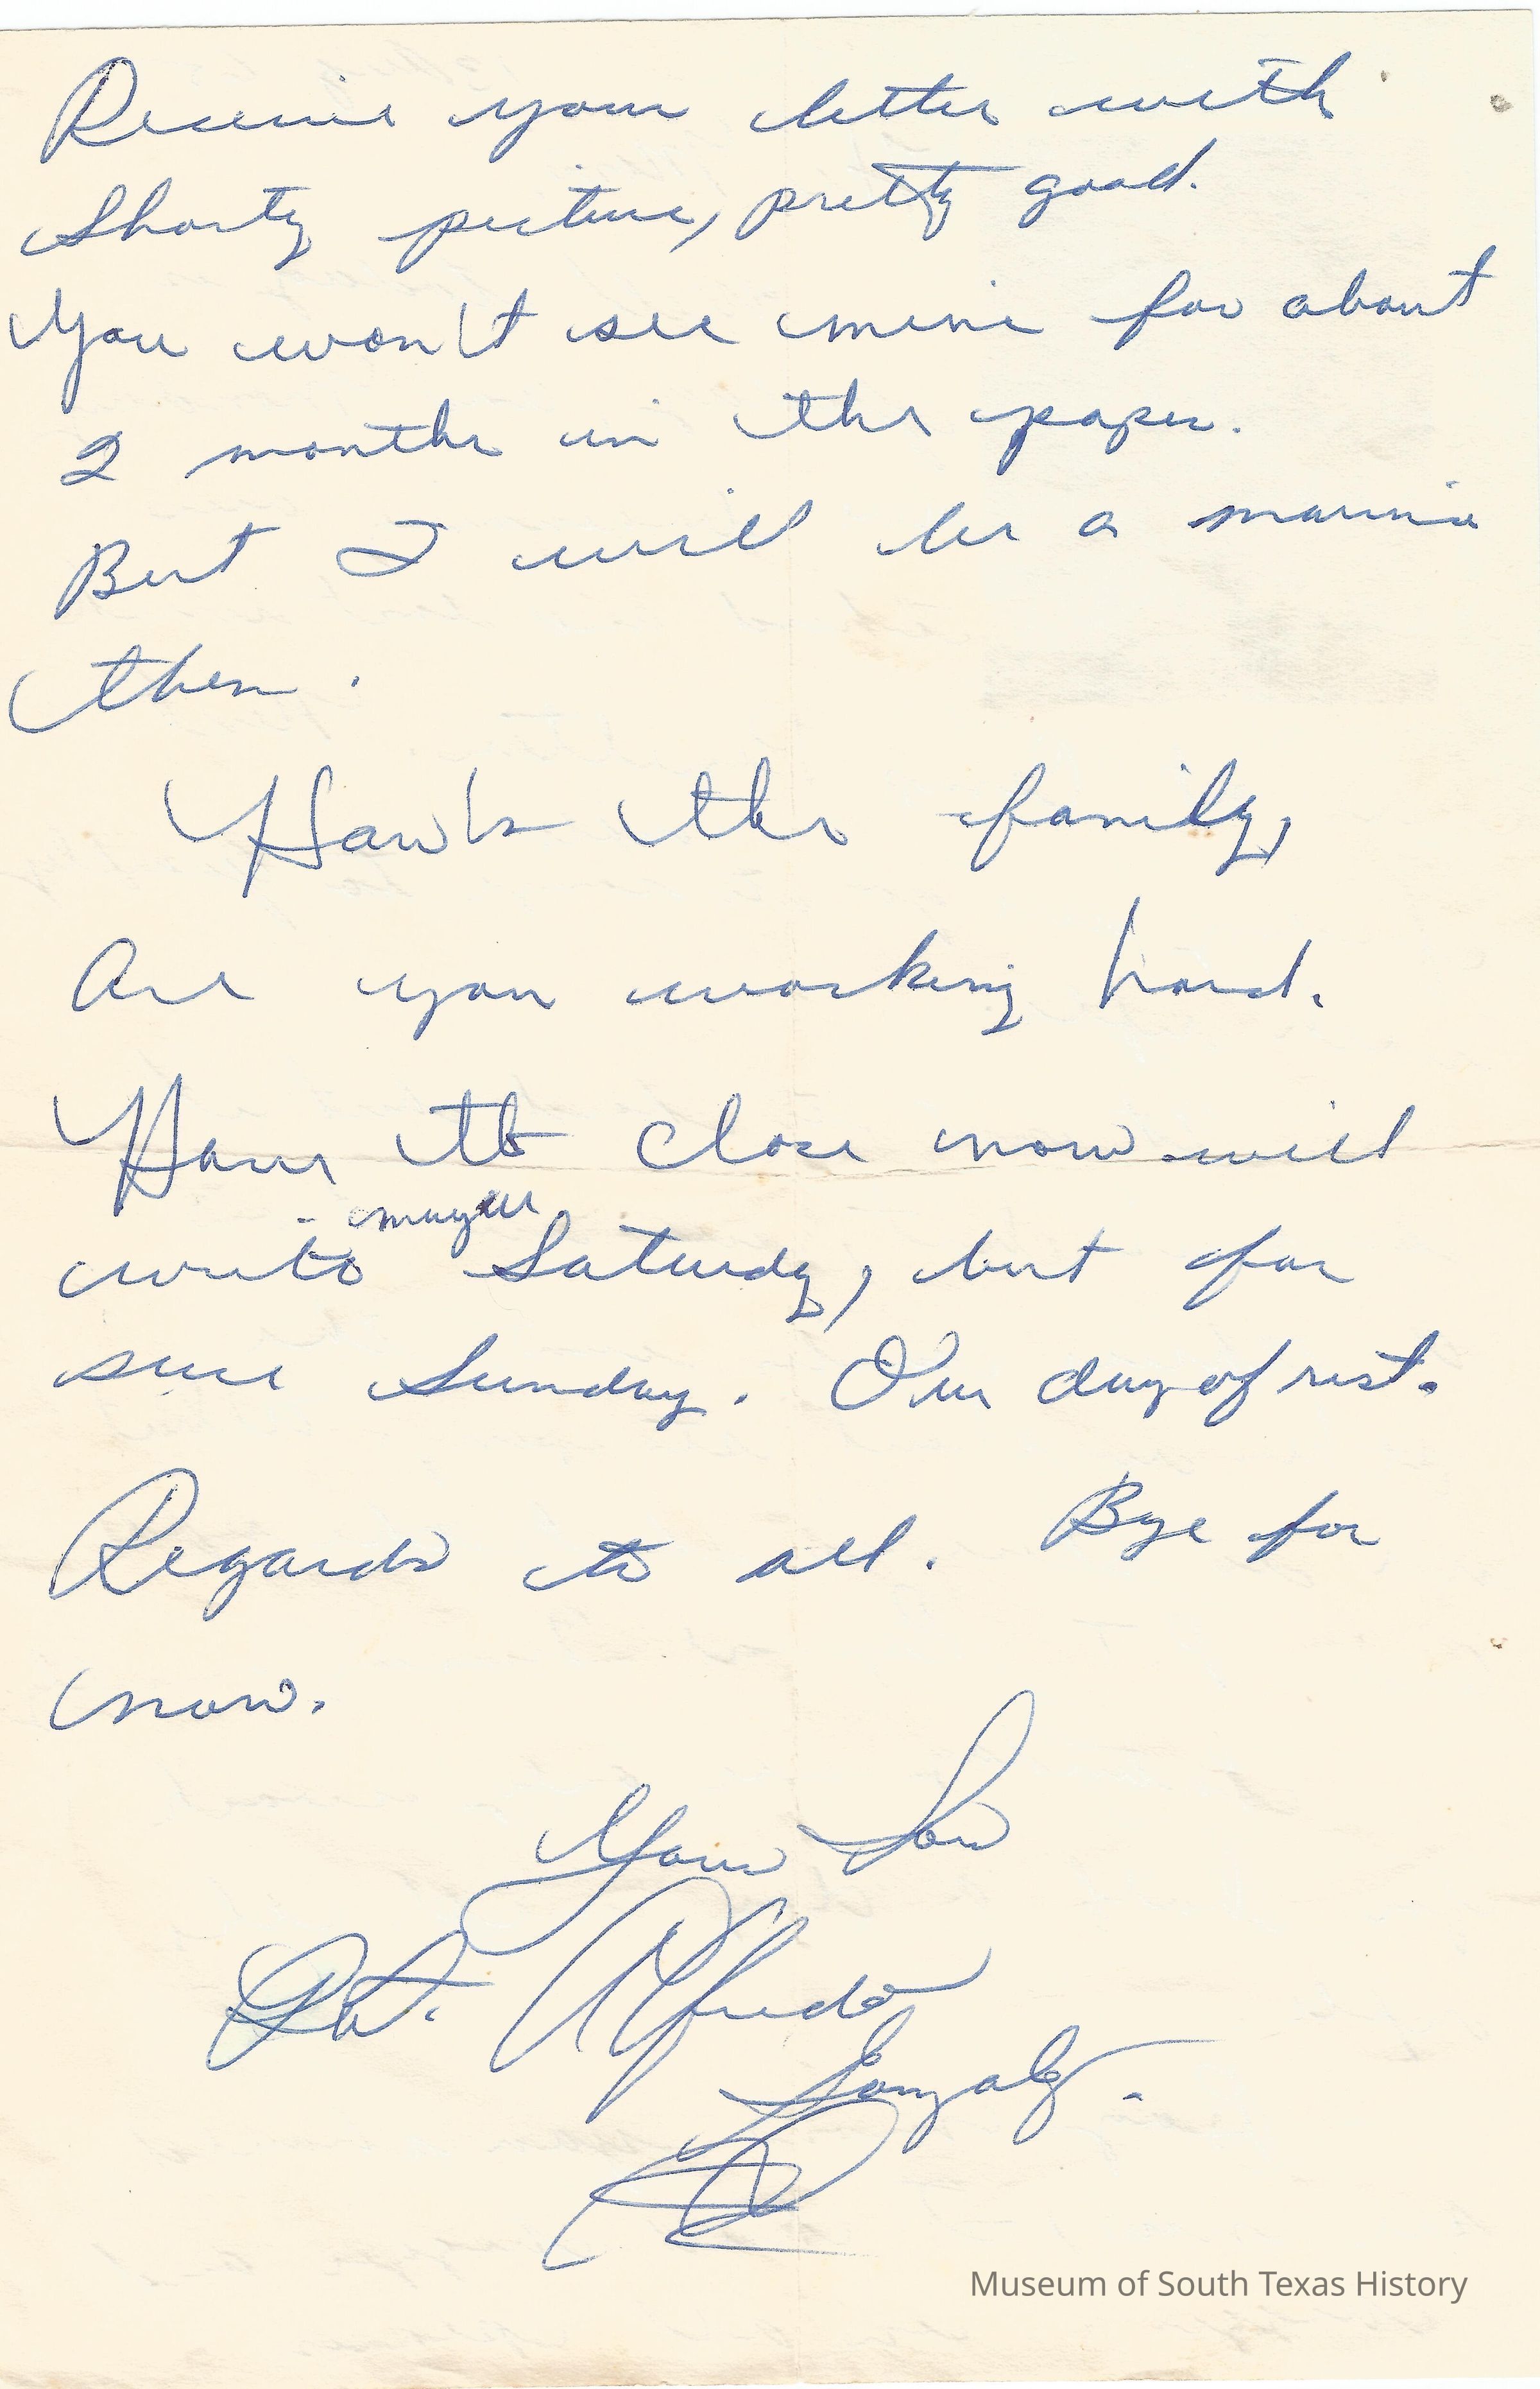 Receive your letter with
Shorty picture, pretty good.
You won't see mine for about
2 months in the paper.
But I will be a marine
then.
How's the family,
Are you working hard.
Have to close now will
write maybe Saturdy, but for
sure Sunday. Our day of rest.
Regards to all. Bye for
now.
Your Son
Pvt. Alfredo
Gonzalez.
Museum of South Texas History